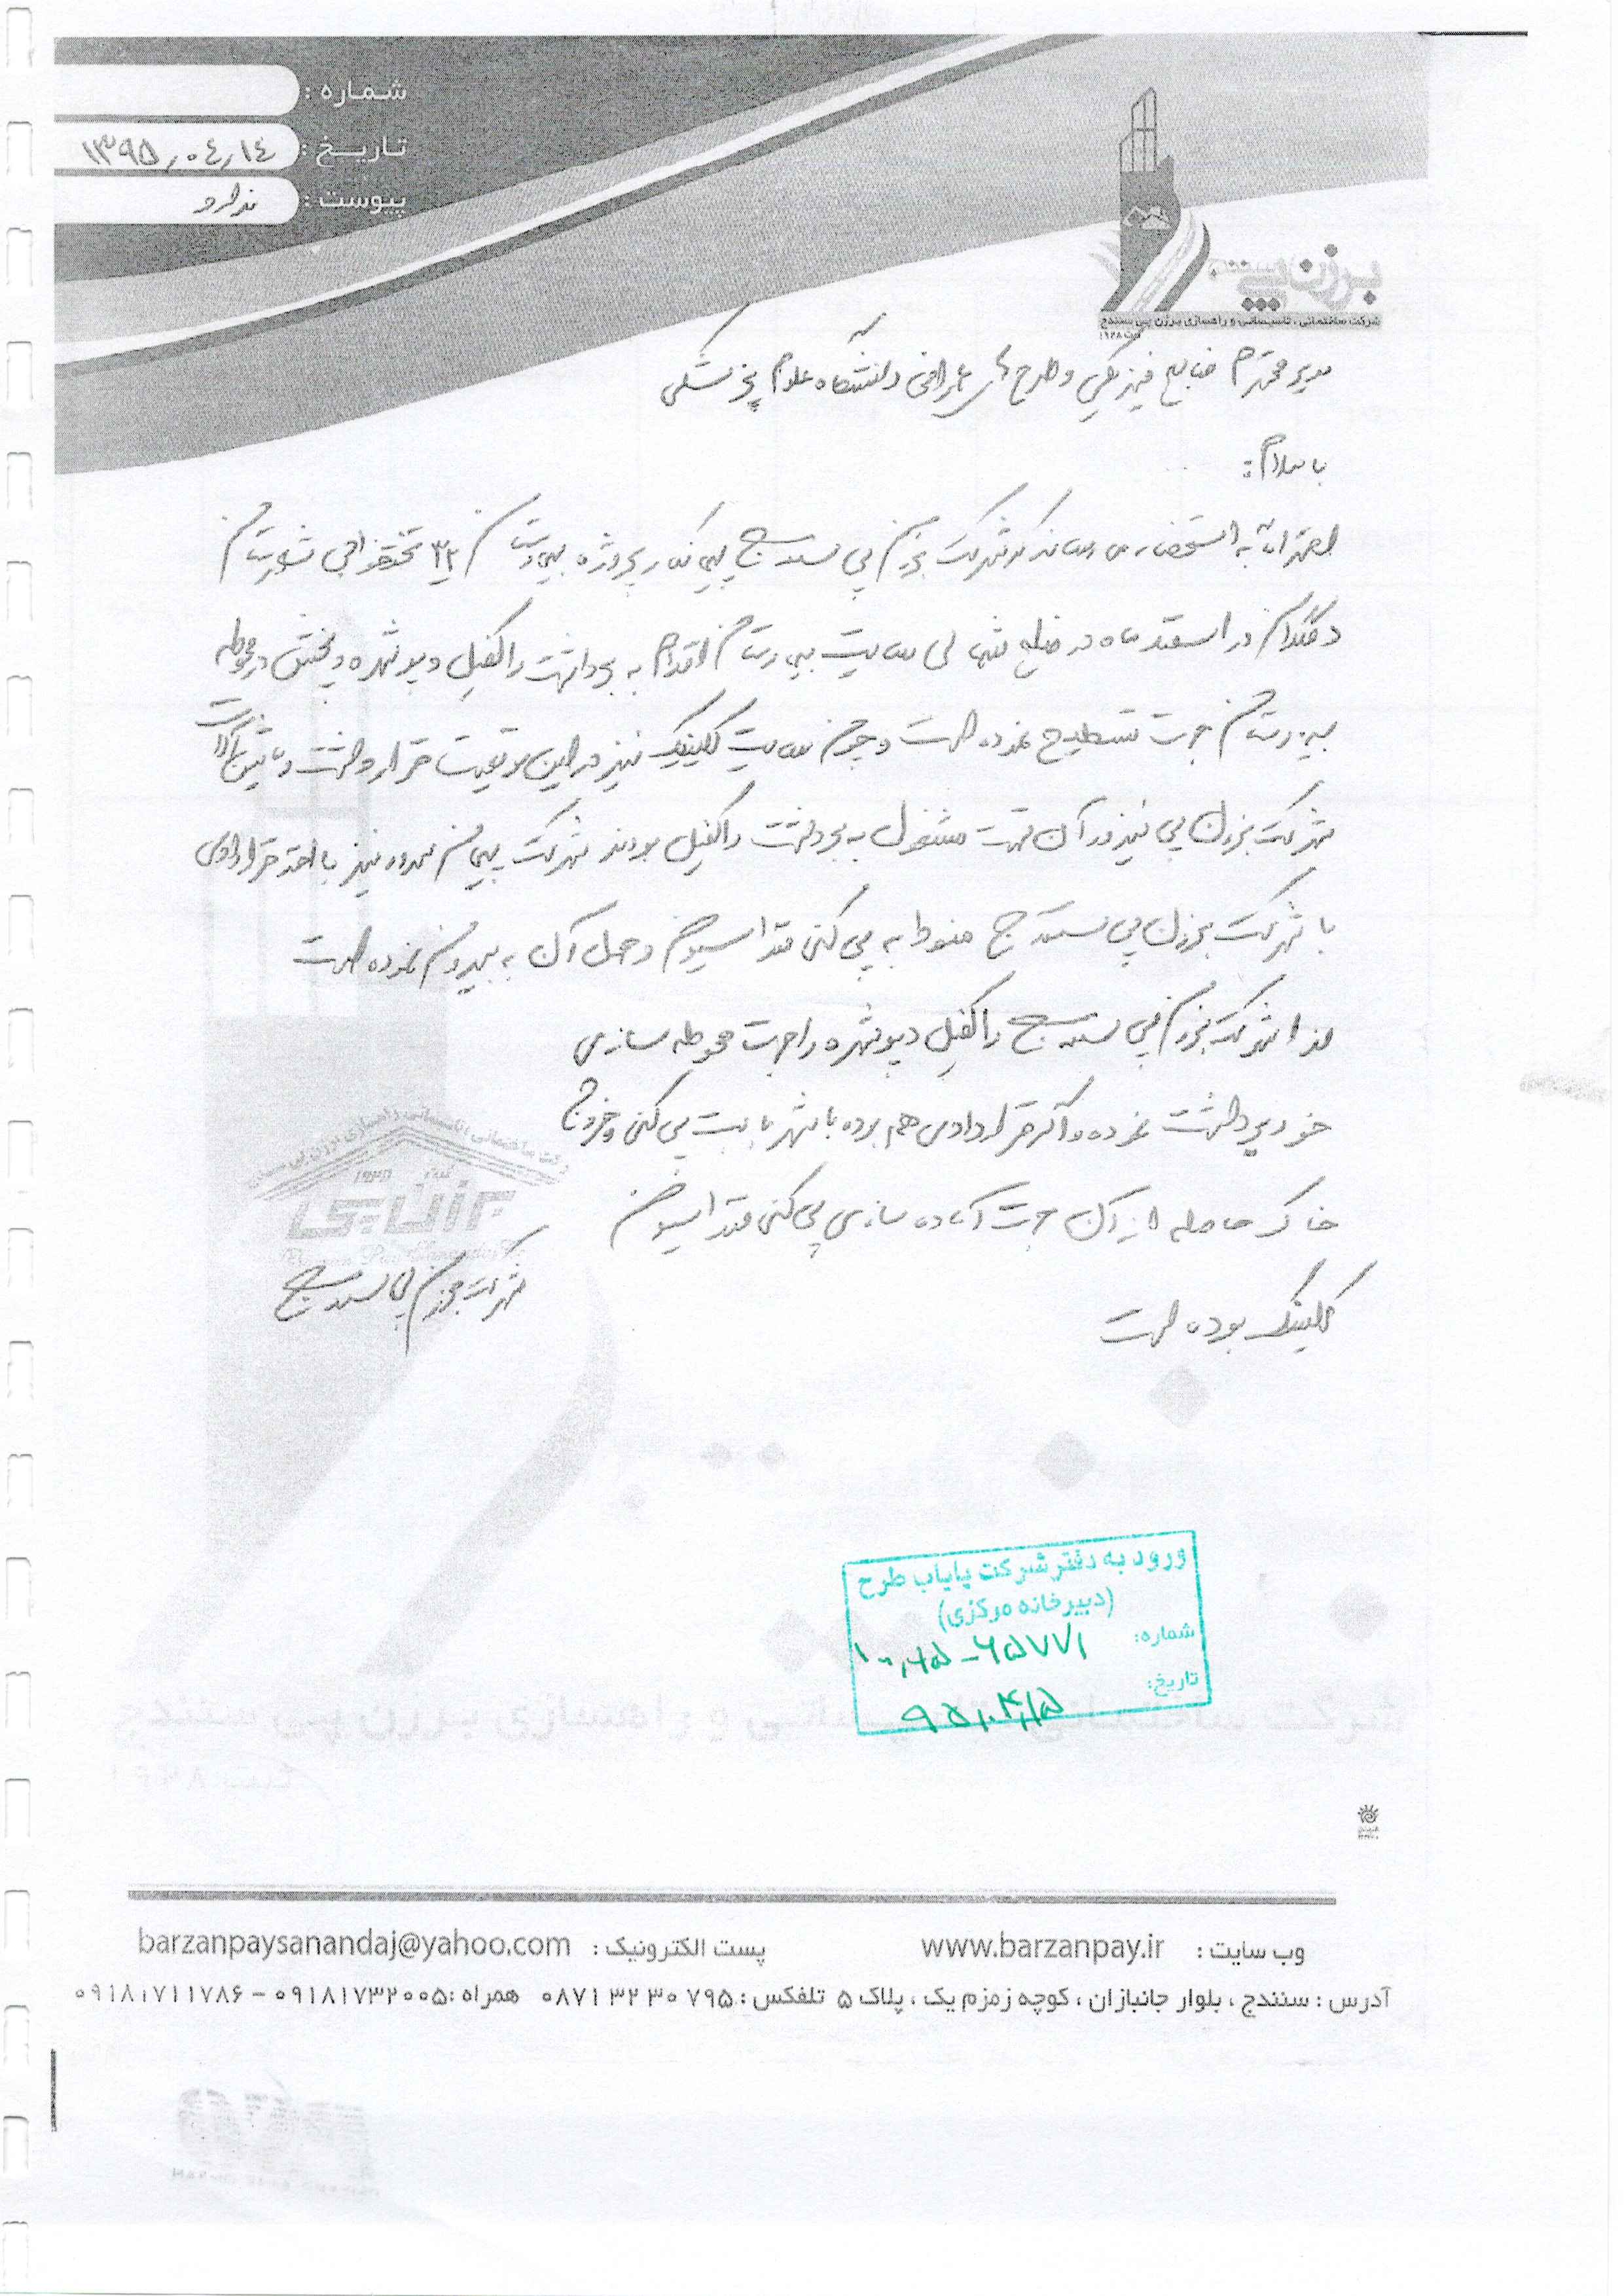 شماره :
تاریخ : ۱۳۹۵,۰۴,۱۴
پیوست : ندارد
برزن پی
شرکت ساختمانی ، تاسیساتی و راهسازی برزن پی سنندج
ثبت ۱۹۳۸
مدیر محترم منابع فیزیکی و طرح های عمرانی دانشگاه علوم پزشکی
با سلام :
احتراماً به استحضار می رساند که شرکت برزن پی سنندج پیمانکار پروژه بیمارستان ۳۲ تختخوابی
دهگلان در اسفند ماه در ضلع شمالی سایت بیمارستان اقدام به برداشت راکفیل دپو شده و پخش در محوطه
بیمارستان جهت تسطیح نموده است و چون سایت کلینیک نیز در این موقعیت قرار داشت و ماشین آلات
شرکت برزن پی نیز در آن قسمت مشغول به برداشت راکفیل بودند شرکت نیز با اخذ قراردادی
با شرکت برزن پی سنندج منوط به پی کنی فنداسیون و حمل آن به بیرون نموده است
لذا شرکت برزن پی سنندج راکفیل دپو شده را جهت محوطه سازی
خود برداشت نموده و اگر قراردادی هم بوده باشد بابت پی کنی و خروج
خاک حاصله از آن جهت آماده سازی پی کنی فنداسیون
کلینیک بوده است
شرکت برزن پی سنندج
ورود به دفتر شرکت پایاب طرح
(دبیرخانه مرکزی)
شماره: ۱۰,۶۵-۶۵۷۷۱
تاریخ: ۹۵,۰۴,۱۵
وب سایت : www.barzanpay.ir پست الکترونیک : barzanpaysanandaj@yahoo.com
آدرس : سنندج ، بلوار جانبازان ، کوچه زمزم یک ، پلاک ۵ تلفکس : ۰۸۷۱ ۳۲ ۳۰ ۷۹۵ همراه : ۰۹۱۸۱۷۳۲۰۰۵ – ۰۹۱۸۱۷۱۱۷۸۶